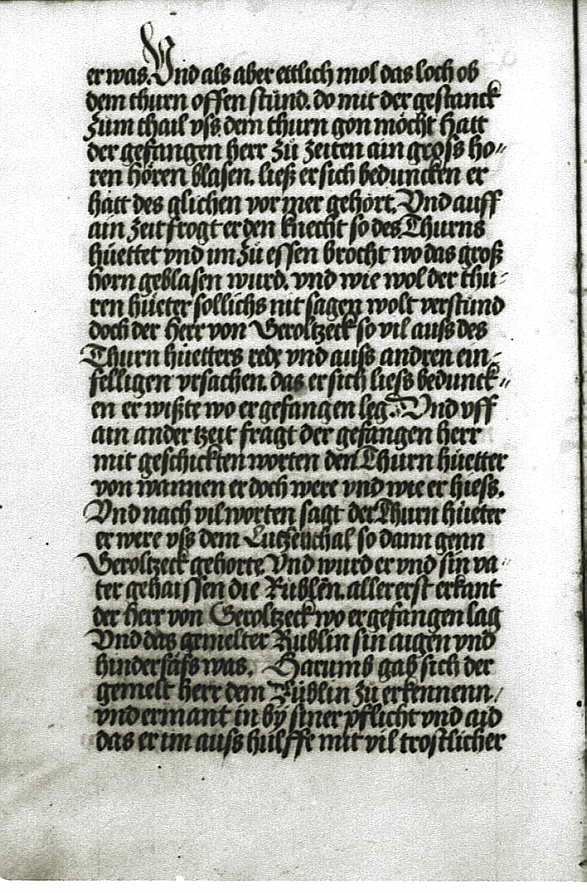 er was. Vnd als aber ettlich mol das loch ob
dem thurn offen stund. do mit der gestanck
zum thail vss dem thurn gon möcht hatt
der gefangen herr zü zeiten ain gross ho-
ren hören blasen. ließ er sich beduncken er
hatt des glichen vor mer gehört. Vnd auff
ain zeit frogt er den knecht so des Thurns
hüettet vnd im zü essen brocht wo das groß
horn geblasen wurd. vnd wie wol der thu-
ren hüeter sollichs nit sagen wolt verstünd
doch der herr von Geroltzeck so vil auß des
Thurn hüetters rede vnd auss andren ein-
felligen vrsachen. das er sich liess bedunck-
en er wißte wo er gefangen leg. Vnd vff
ain ander tzeit fragt der gefangen herr
mit geschickten worten den Thurn hüetter
von wannen er doch were vnd wie er hiess.
Vnd nach vil worten sagt der Thurn hüeter
er were vss dem Lutzelthal so dann genn
Geroltzeck gehorte. Vnd wurd er vnd sin va-
ter gehaissen die Rublin. allererst erkant
der herr von Geroltzeck wo er gefangen lag
Vnd das gemelter Rublin sin aigen vnd
hindersäss was. Darumb gab sich der
gemelt herr dem Rüblin zü erkennenn/
vnd ermant in by siner pflicht vnd aid
das er im auss hülffe mit vil trostlicher